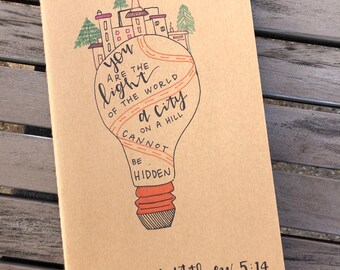 you
ARE THE
light
OF THE WORLD
a city
ON A HILL
CANNOT
BE
HIDDEN
5:14